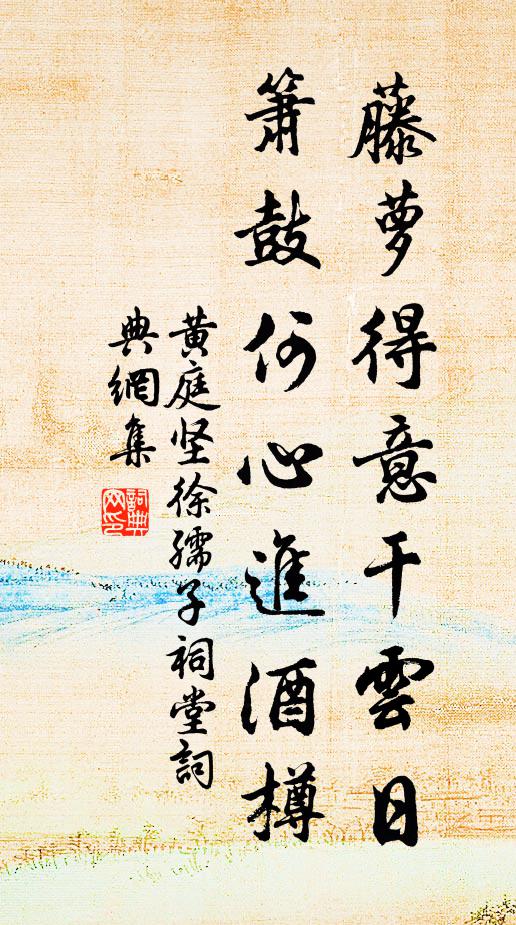 藤萝得意干雲日
簫鼓何心進酒樽
黄庭坚徐孺子祠堂詞
典網集
詞典
网印